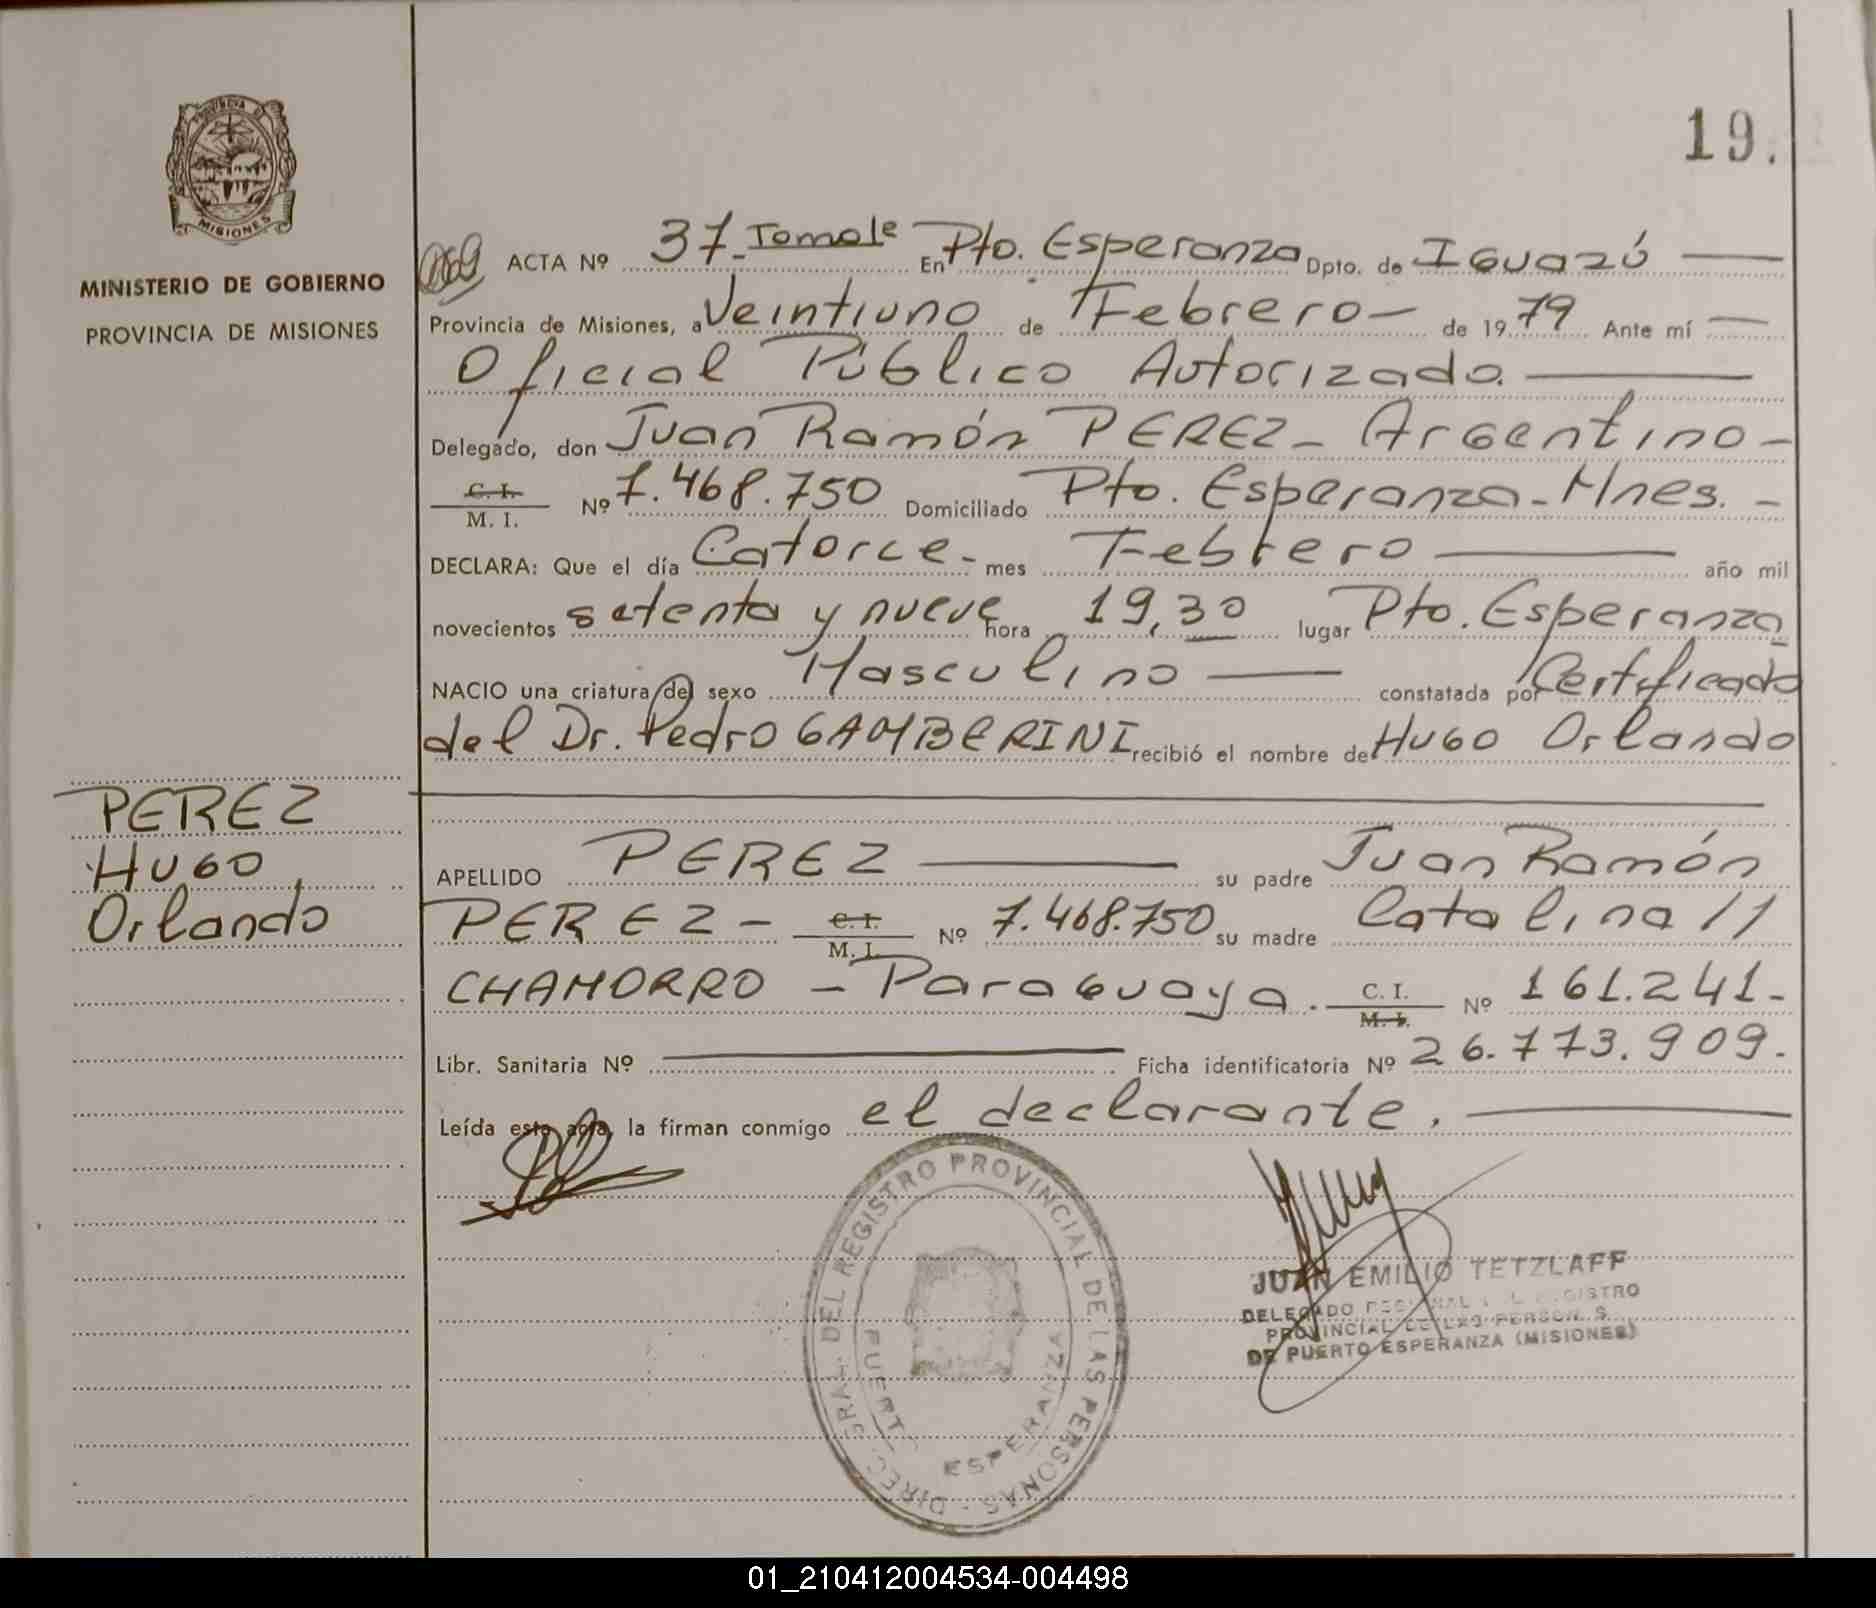 19.
PROVINCIA DE
MISIONES
MINISTERIO DE GOBIERNO
PROVINCIA DE MISIONES
ACTA Nº 37- En Pto. Esperanza Dpto. de Iguazú
Provincia de Misiones, a Veintiuno de Febrero- de 19 79 Ante mí
Oficial Público Autorizado.
Delegado, don Juan Ramón PEREZ- Argentino-
C. I.
M. I. Nº 7.468.750 Domiciliado Pto. Esperanza- Mnes. -
DECLARA: Que el día Catorce- mes Febrero año mil
novecientos setenta y nueve hora 19,30 lugar Pto. Esperanza
NACIO una criatura del sexo Masculino constatada por Certificado
del Dr. Pedro GAMBERINI recibió el nombre de Hugo Orlando
PEREZ
Hugo
Orlando
APELLIDO PEREZ su padre Juan Ramón
PEREZ - C. I.
M. I. Nº 7.468.750 su madre Catalina //
CHAMORRO - Paraguaya. C. I.
M. I. Nº 161.241-
Libr. Sanitaria Nº Ficha identificatoria Nº 26.773.909.
Leída esta acta, la firman conmigo el declarante.
DIREC. GRAL. DEL REGISTRO PROVINCIAL DE LAS PERSONAS
PUERTO ESPERANZA
JUAN EMILIO TETZLAFF
DELEGADO REGIONAL DEL REGISTRO
PROVINCIAL DE LAS PERSONAS
DE PUERTO ESPERANZA (MISIONES)
01_210412004534-004498